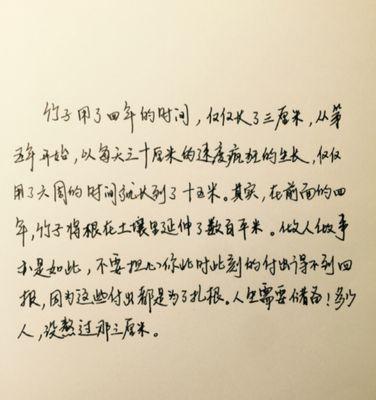 竹子用了四年的时间，仅仅长了三厘米，从第
五年开始，以每天三十厘米的速度疯狂的生长，仅仅
用了六周的时间就长到了十五米。其实，在前面的四
年，竹子将根在土壤里延伸了数百平米。做人做事
亦是如此，不要担心你此时此刻的付出得不到回
报，因为这些付出都是为了扎根。人生需要储备！多少
人，没熬过那三厘米。